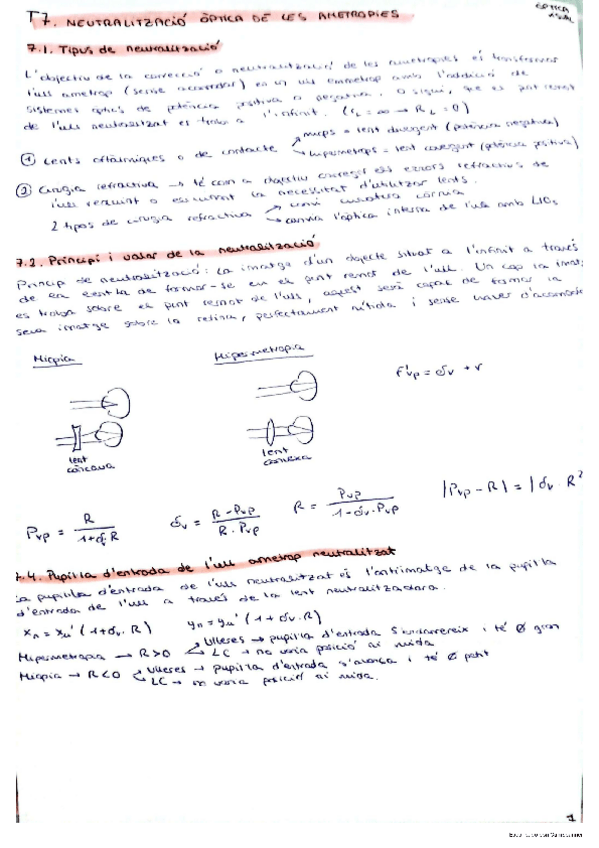 T7. NEUTRALITZACIÓ ÒPTICA DE LES AMETROPIES
ÒPTICA VISUAL
7.1. Tipus de neutralització
L'objectiu de la correcció o neutralització de les ametropies és transformar
l'ull ametrop (sense acomodar) en un ull emmetrop amb l'addició de
sistemes òptics de potència positiva o negativa. O sigui, que el punt remot
de l'ull neutralitzat es trobi a l'infinit. (rL = ∞ → RL = 0)
① Lents oftàlmiques o de contacte → miops = lent divergent (potència negativa)
→ hipermetrops = lent convergent (potència positiva)
② Cirurgia refractiva → té com a objectiu corregir els errors refractius de
l'ull reduint o eliminant la necessitat d'utilitzar lents.
2 tipus de cirurgia refractiva → canvi curvatura còrnia
→ canvia l'òptica interna de l'ull amb LIOs
7.2. Principi i valor de la neutralització
Principi de neutralització: La imatge d'un objecte situat a l'infinit a través
de la lent ha de formar-se en el punt remot de l'ull. Un cop la imatge
es troba sobre el punt remot de l'ull, aquest serà capaç de formar la
seva imatge sobre la retina, perfectament nítida i sense haver d'acomodar
Miopia
Hipermetropia
f'vp = δv + r
lent còncava
lent convexa
Pvp = R / 1+δv·R
δv = R-Pvp / R·Pvp
R = Pvp / 1-δv·Pvp
|Pvp - R| = |δv · R²
7.4. Pupil·la d'entrada de l'ull ametrop neutralitzat
La pupil·la d'entrada de l'ull neutralitzat és l'antiimatge de la pupil·la
d'entrada de l'ull a través de la lent neutralitzadora.
xn = xu' (1+δv·R) yn = yu' (1+δv·R)
Hipermetropia → R>0 Ulleres → pupil·la d'entrada s'endarrereix i té ø gran
LC → no varia posició ni mida
Miopia → R<0 Ulleres → pupil·la d'entrada s'avança i té ø petit
LC → no varia posició ni mida.
1